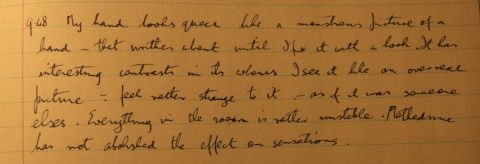 9.48 My hand looks queer like a monstrous picture of a
hand - that writhes about until I fix it with a look. It has
interesting contrasts in its colours I see it like an overreal
picture - feel rather strange to it - as if it was someone
elses. Everything in the room is rather unstable. Methedrine
has not abolished the effect on sensations.